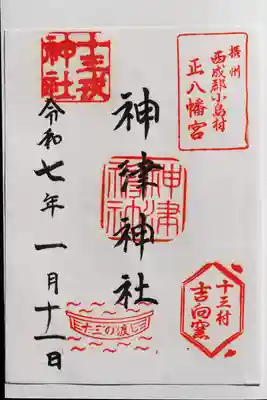 摂州
西成郡小島村
正八幡宮
十三戎
神社
神津神社
神津
神社
令和七年一月十一日
十三村
吉向窯
十三の渡し